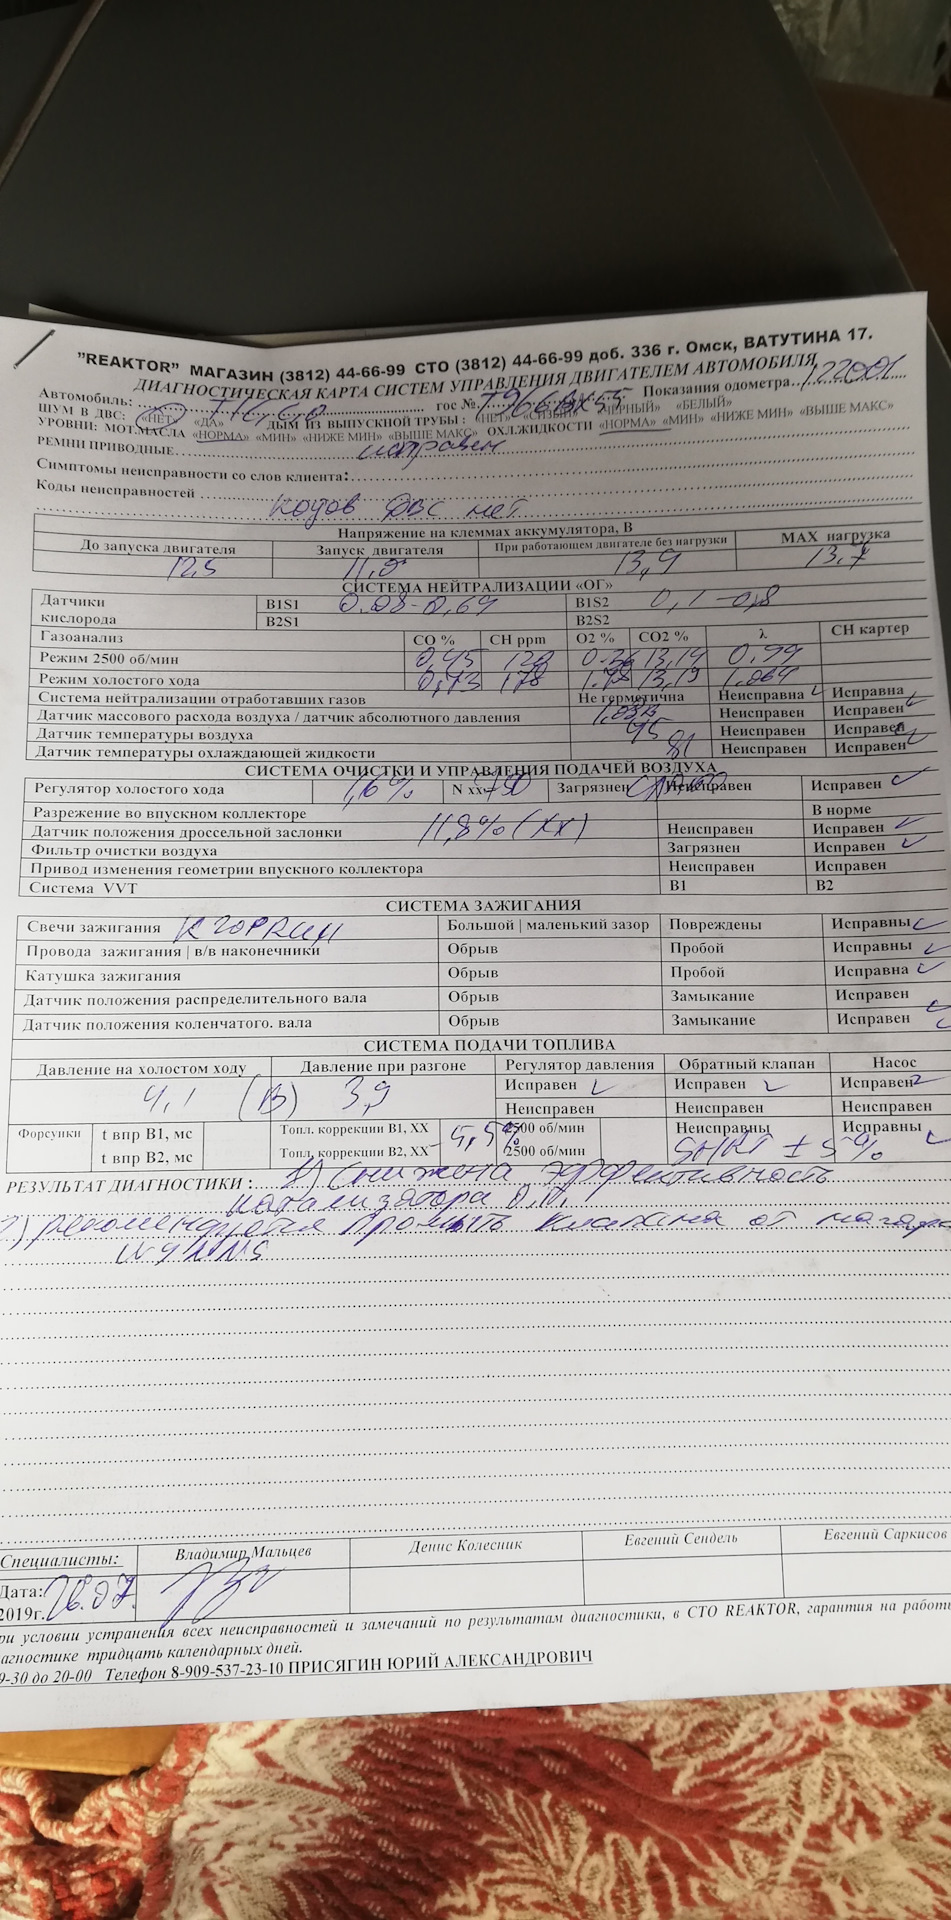 "REAKTOR" МАГАЗИН (3812) 44-66-99 СТО (3812) 44-66-99 доб. 336 г. Омск, ВАТУТИНА 17.
ДИАГНОСТИЧЕСКАЯ КАРТА СИСТЕМ УПРАВЛЕНИЯ ДВИГАТЕЛЕМ АВТОМОБИЛЯ
Автомобиль: гос №. Показания одометра 122001
ШУМ В ДВС: «НЕТ» «ДА» ДЫМ ИЗ ВЫПУСКНОЙ ТРУБЫ: «НЕТ» «СИЗЫЙ» «ЧЕРНЫЙ» «БЕЛЫЙ»
УРОВНИ: МОТ.МАСЛА «НОРМА» «МИН» «НИЖЕ МИН» «ВЫШЕ МАКС» ОХЛ.ЖИДКОСТИ «НОРМА» «МИН» «НИЖЕ МИН» «ВЫШЕ МАКС»
РЕМНИ ПРИВОДНЫЕ исправен
Симптомы неисправности со слов клиента:
Коды неисправностей
кодов ДВС нет
Напряжение на клеммах аккумулятора, В
До запуска двигателя Запуск двигателя При работающем двигателе без нагрузки MAX нагрузка
12,5 13,9 13,7
СИСТЕМА НЕЙТРАЛИЗАЦИИ «ОГ»
Датчики кислорода B1S1 0.08-0,69 B1S2 0,1-0,8
B2S1 B2S2
Газоанализ CO % CH ppm O2 % CO2 % λ CH картер
Режим 2500 об/мин 0,45 13,14 0,99
Режим холостого хода 178 13,13
Система нейтрализации отработавших газов Не герметична Неисправна Исправна
Датчик массового расхода воздуха / датчик абсолютного давления 1,03В Неисправен Исправен
Датчик температуры воздуха 45 Неисправен Исправен
Датчик температуры охлаждающей жидкости 91 Неисправен Исправен
СИСТЕМА ОЧИСТКИ И УПРАВЛЕНИЯ ПОДАЧЕЙ ВОЗДУХА
Регулятор холостого хода 1,6% N хх 750 Загрязнен Неисправен Исправен
Разрежение во впускном коллекторе В норме
Датчик положения дроссельной заслонки 11,8% (XX) Неисправен Исправен
Фильтр очистки воздуха Загрязнен Исправен
Привод изменения геометрии впускного коллектора Неисправен Исправен
Система VVT B1 B2
СИСТЕМА ЗАЖИГАНИЯ
Свечи зажигания Большой | маленький зазор Повреждены Исправны
Провода зажигания | в/в наконечники Обрыв Пробой Исправны
Катушка зажигания Обрыв Пробой Исправна
Датчик положения распределительного вала Обрыв Замыкание Исправен
Датчик положения коленчатого. вала Обрыв Замыкание Исправен
СИСТЕМА ПОДАЧИ ТОПЛИВА
Давление на холостом ходу Давление при разгоне Регулятор давления Обратный клапан Насос
4,1 (В) 3,9 Исправен Исправен Исправен
Неисправен Неисправен Неисправен
Форсунки t впр B1, мс Топл. коррекции B1, XX -5,5% 2500 об/мин Неисправны Исправны
t впр B2, мс Топл. коррекции B2, XX 2500 об/мин SHRT ± 5%
РЕЗУЛЬТАТ ДИАГНОСТИКИ: 1) Снижена эффективность
катализатора О.Г.
2) рекомендуется промыть клапана от нагара
WYNNS
Специалисты: Владимир Мальцев Денис Колесник Евгений Сендель Евгений Саркисов
Дата: 26.07.
2019г.
ри условии устранения всех неисправностей и замечаний по результатам диагностики, в СТО REAKTOR, гарантия на работы
агностике тридцать календарных дней.
9-30 до 20-00 Телефон 8-909-537-23-10 ПРИСЯГИН ЮРИЙ АЛЕКСАНДРОВИЧ